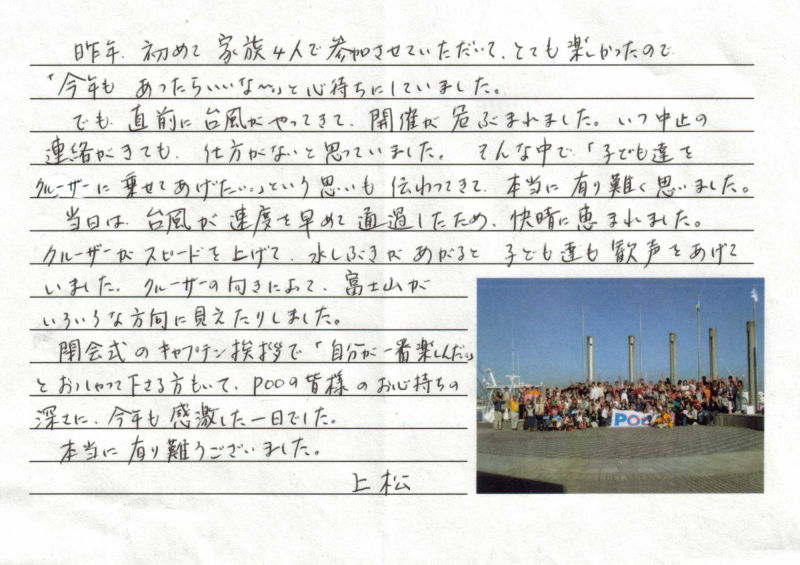 昨年、初めて 家族4人で参加させていただいて、とても楽しかったので
「今年も あったらいいな〜。」と心待ちにしていました。
でも、直前に台風がやってきて、開催が 危ぶまれました。いつ中止の
連絡がきても、仕方がないと思っていました。 そんな中で、「子ども達を
クルーザーに乗せてあげたい。」という思いも 伝わってきて、本当に有り難く思いました。
当日は、台風が 速度を早めて通過したため、快晴に恵まれました。
クルーザーがスピードを上げて、水しぶきがあがると 子ども達も歓声をあげて
いました。クルーザーの向きによって、富士山が
いろいろな方向に見えたりしました。
閉会式のキャプテン挨拶で「自分が一番楽しんだ。」
とおっしゃって下さる方もいて、POOの皆様のお心持ちの
深さに、今年も感激した一日でした。
本当に有り難うございました。
上松
POO